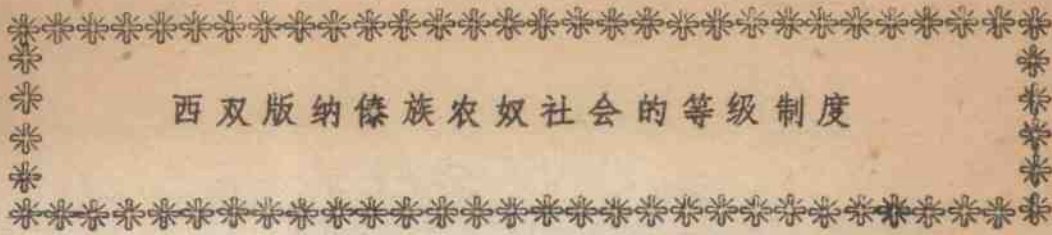 西双版纳傣族农奴社会的等级制度